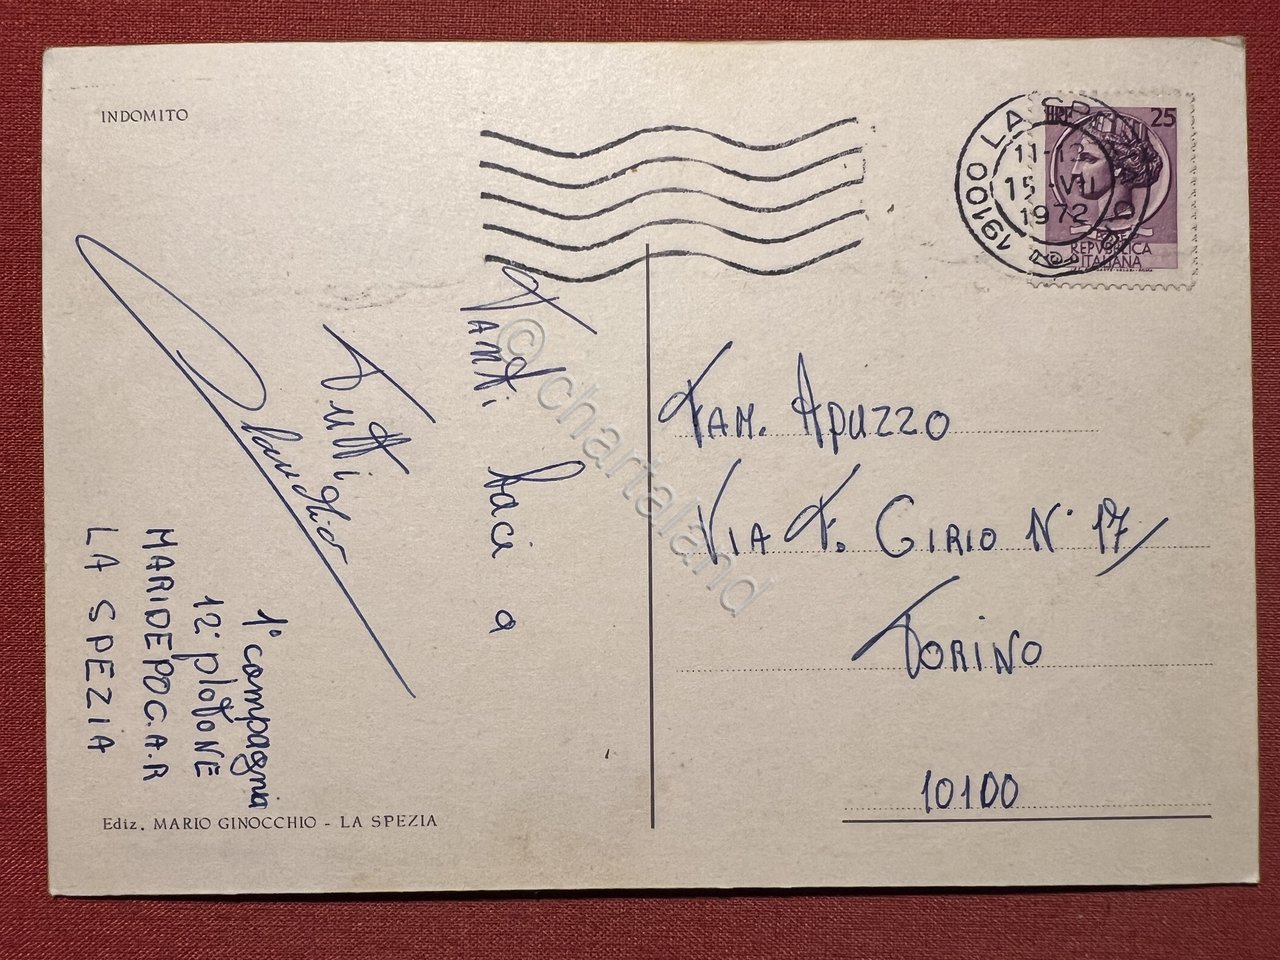 INDOMITO
19100 LA SPEZIA
11-12
15 VII
1972
LIRE 25
REPVBBLICA
ITALIANA
Tanti baci a
Tutti
Claudio
1° compagnia
12° plotone
MARIDEPOCAR
LA SPEZIA
Fam. Apuzzo
Via F. Cirio N° 17
Torino
10100
Ediz. MARIO GINOCCHIO - LA SPEZIA
© chartaland